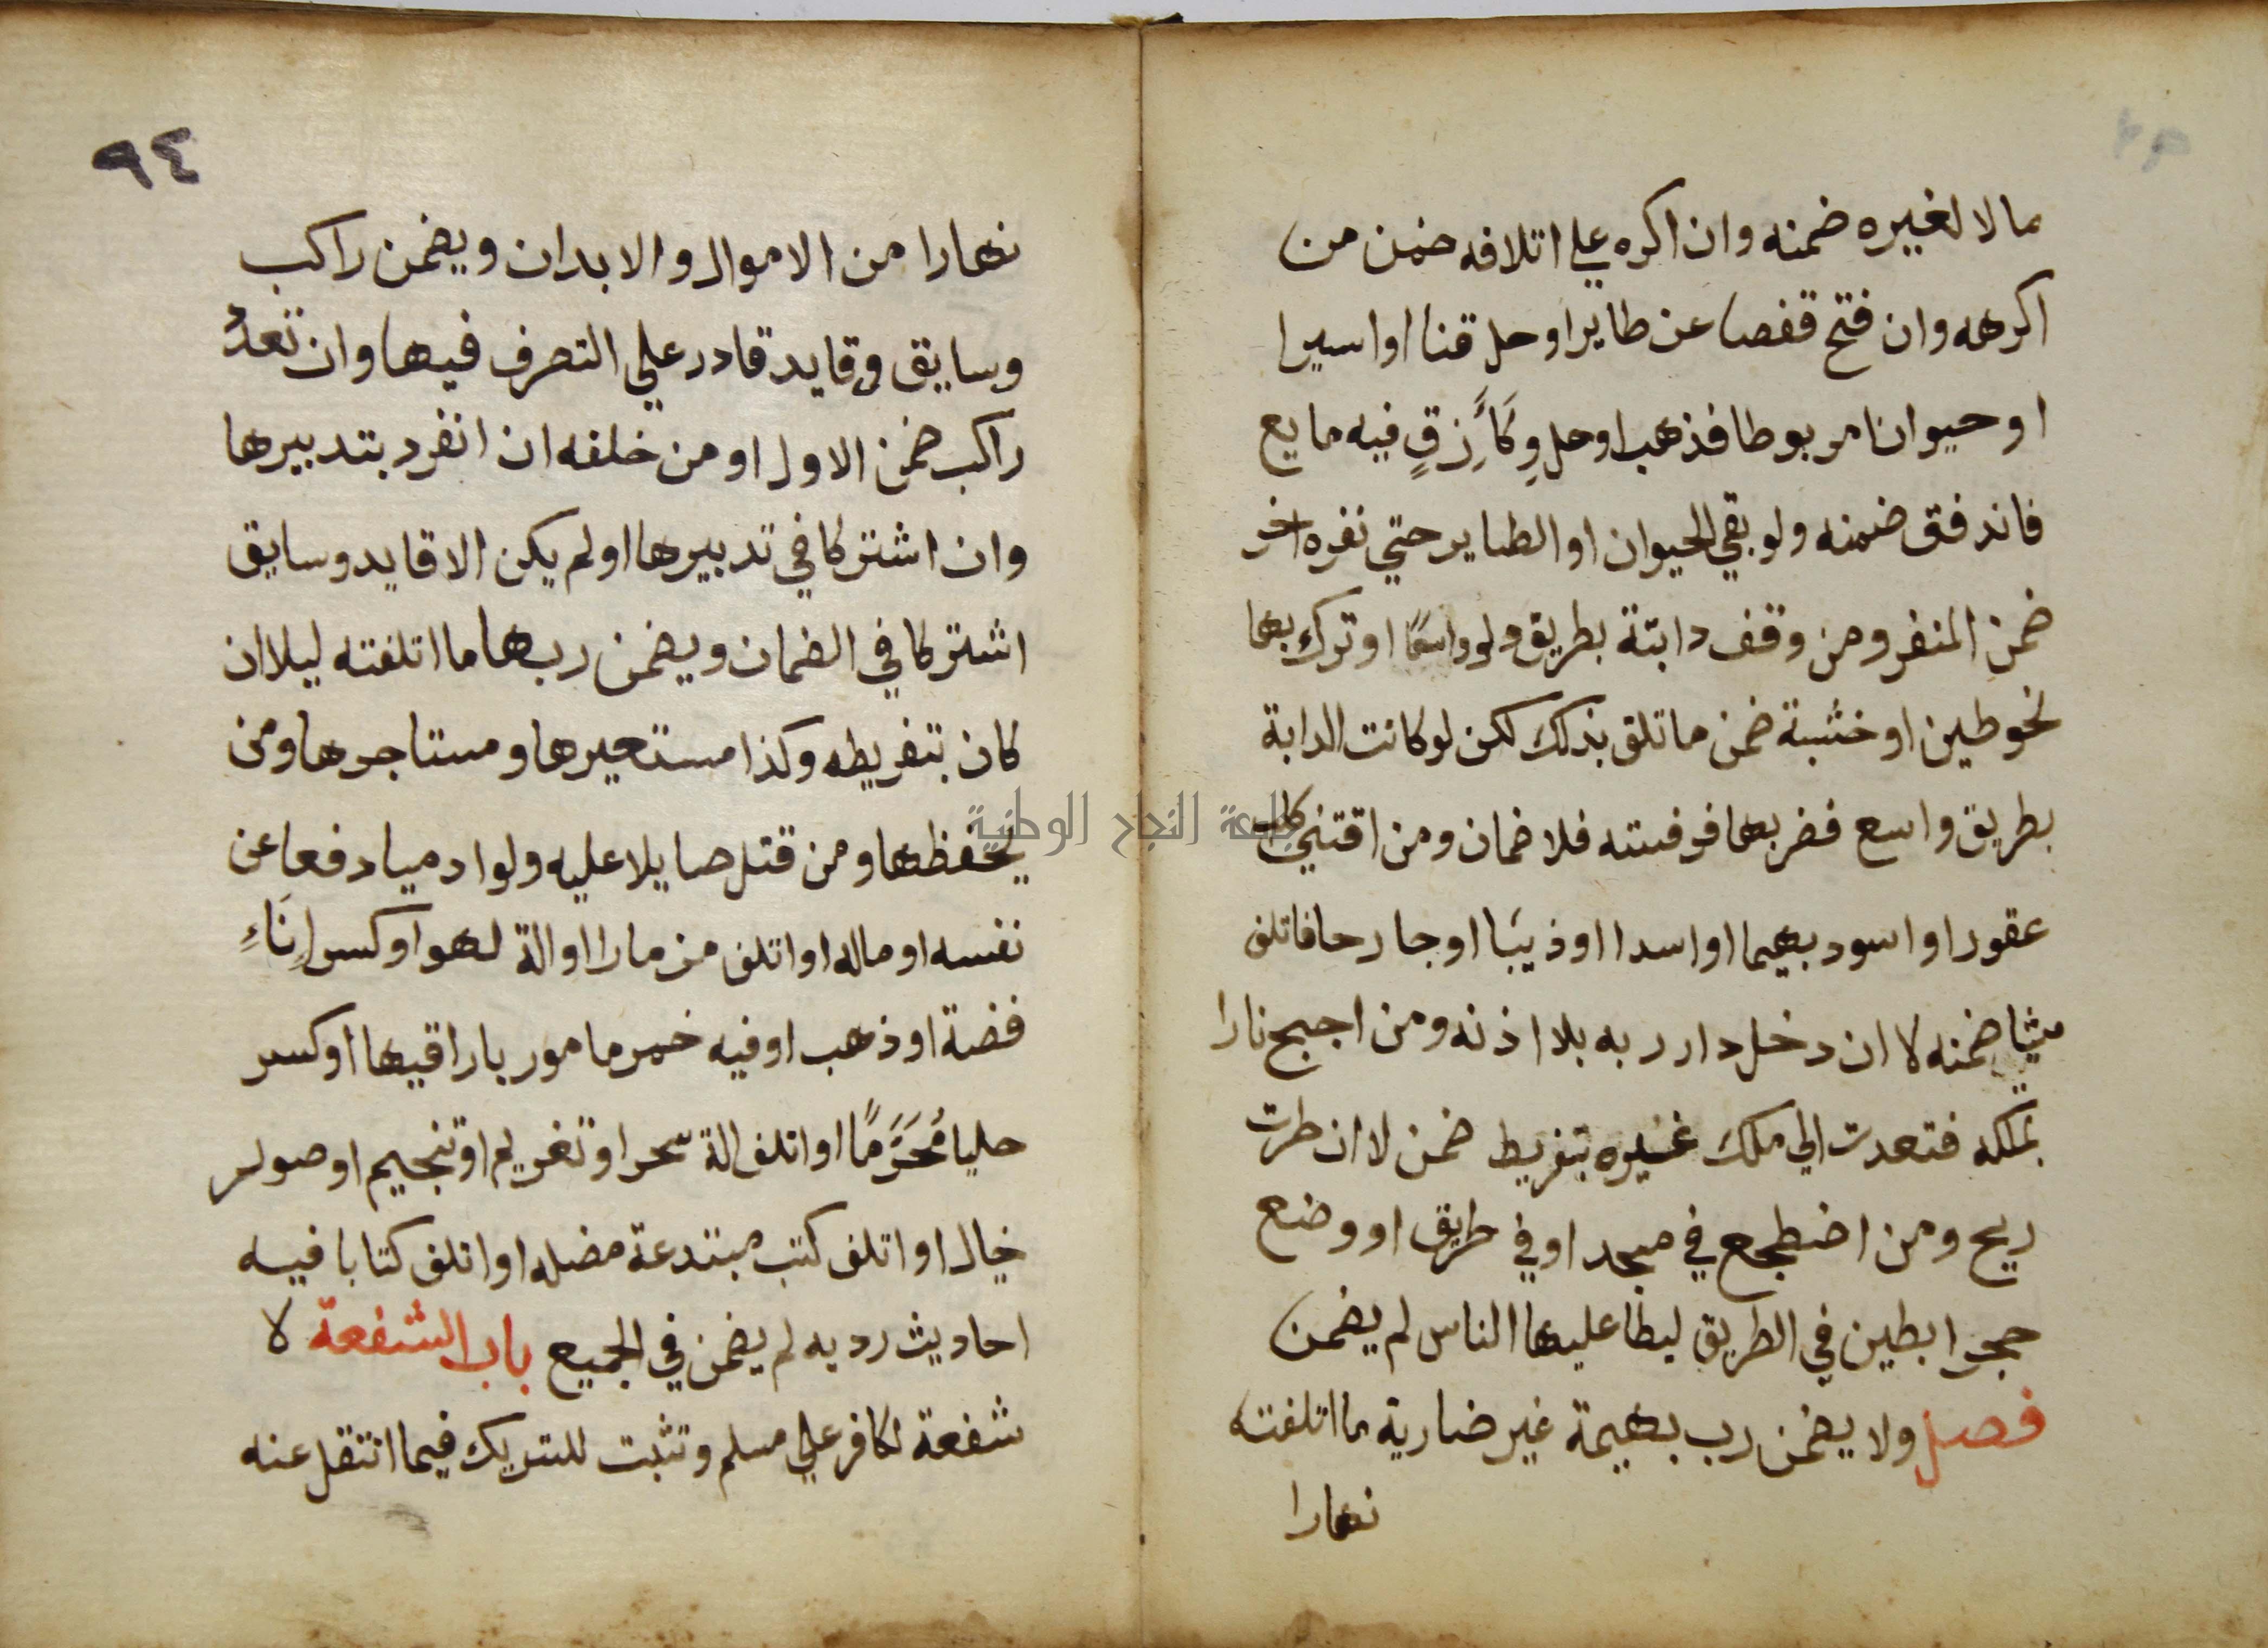 مالا لغيره ضمنه وان اكره علي اتلافه ضمن من
اكرهه وان فتح قفصا عن طاير او حل قنا او اسيرا
او حيوانا مربوطا فذهب او حل وِكَاءَ زِقٍ فيه مايع
فاندفق ضمنه ولو بقي الحيوان او الطاير حتي نفره اخر
ضمن المنفر ومن وقف دابتة بطريق ولو واسعًا او ترك بها
نحو طين او خشبة ضمن ما تلق بذلك لكن لو كانت الدابة
بطريق واسع فضربها فرفسته فلا ضمان ومن اقتني كلبا
عقورا او اسود بهيما او اسدا او ذيبا او جارحا فاتلف
شيا ضمنه لا ان دخل دار ربه بلا اذنه ومن اجج نارا
بملكه فتعدت الي ملك غيره بتفريط ضمن لا ان طرت
ريح ومن اضطجع في مسجد او في طريق او وضع
حجرا بطين في الطريق ليطا عليها الناس لم يضمن
فصل ولا يضمن رب بهيمة غير ضارية ما اتلفته
نهارا
٩٤
نهارا من الاموال والابدان ويضمن راكب
وسايق وقايد قادر علي التصرف فيها وان تعدد
راكب ضمن الاول او من خلفه ان انفرد بتدبيرها
وان اشتركا في تدبيرها او لم يكن الا قايد وسايق
اشتركا في الضمان ويضمن ربها ما اتلفته ليلا ان
كان بتفريطه وكذا مستعيرها ومستاجرها ومن
يحفظها ومن قتل صايلا عليه ولو ادميا دفعا عن
نفسه او ماله او اتلف مزمارا او الة لهو او كسر اِنَاءِ
فضة او ذهب او فيه خمر مامور باراقيها او كسر
حليا مُحَرَّمًا او اتلف الة سحر او تغريم او تنجيم او صور
خيال او اتلف كتب مبتدعة مضله او اتلف كتابا فيه
احاديث رديه لم يضمن في الجميع باب الشفعة لا
شفعة لكافر علي مسلم وتثبت للشريك فيما انتقل عنه
جامعة النجاح الوطنية